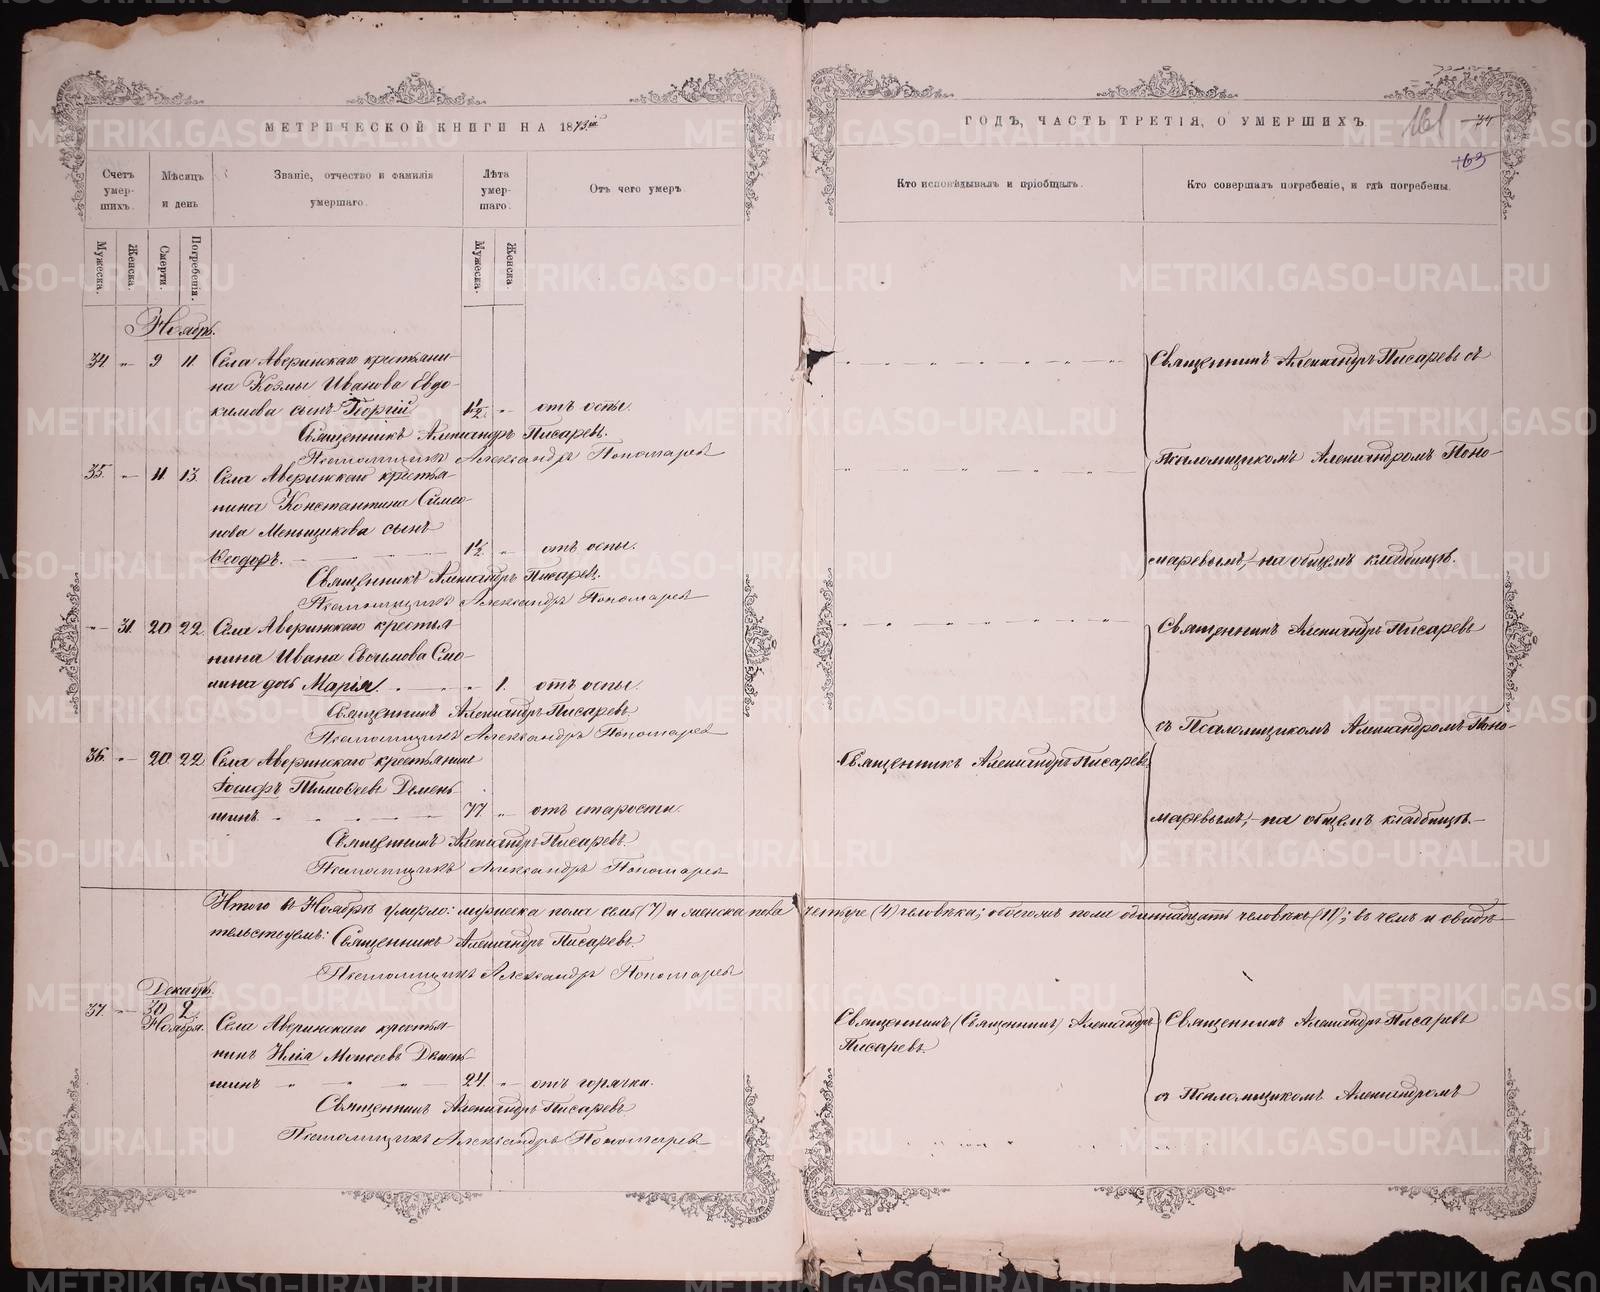 МЕТРИЧЕСКОЙ КНИГИ НА 1873й
ГОДЪ, ЧАСТЬ ТРЕТІЯ, О УМЕРШИХЪ
161
34
63
Счетъ умер-шихъ.
Мѣсяцъ и день
Званіе, отчество и фамилія умершаго.
Лѣта умер-шаго.
Отъ чего умеръ.
Кто исповѣдывалъ и пріобщалъ.
Кто совершалъ погребеніе, и гдѣ погребены.
Мужеска.
Женска.
Смерти.
Погребенія.
Мужеска.
Женска.
Ноябрь.
34. " 9 11. Села Аверинскаго крестьяни-
на Козмы Иванова Евдо-
кимова сынъ Георгій 1½ " отъ оспы.
Священникъ Александръ Писаревъ.
Псаломщикъ Александръ Пономаревъ
Священникъ Александръ Писаревъ съ
Псаломщикомъ Александромъ Поно-
маревымъ, на общемъ кладбищѣ.
35. " 11. 13. Села Аверинскаго крестья-
нина Константина Симео-
нова Меньщикова сынъ
Ѳеодоръ. 1½ " отъ оспы.
Священникъ Александръ Писаревъ.
Псаломщикъ Александръ Пономаревъ
" 31. 20 22. Села Аверинскаго крестья-
нина Ивана Евѳимова Смо-
лина дочь Марія. " 1. отъ оспы.
Священникъ Александръ Писаревъ.
Псаломщикъ Александръ Пономаревъ
Священникъ Александръ Писаревъ
съ Псаломщикомъ Александромъ Поно-
маревымъ, на общемъ кладбищѣ.
36. " 20. 22. Села Аверинскаго крестьянинъ
Іосифъ Тимоѳеевъ Демень-
шинъ. 77 " отъ старости.
Священникъ Александръ Писаревъ
Священникъ Александръ Писаревъ.
Псаломщикъ Александръ Пономаревъ
Итого въ Ноябрѣ умерло: мужеска пола семь (7) и женска пола четыре (4) человѣка; обоего пола одиннадцать человѣкъ (11); въ чемъ и свидѣ-
тельствуемъ: Священникъ Александръ Писаревъ.
Псаломщикъ Александръ Пономаревъ
Декабрь.
37. " 30 2.
Ноября.
Села Аверинскаго крестья-
нинъ Илія Моисеевъ Демень-
шинъ 24. " отъ горячки.
Священникъ Александръ Писаревъ
Псаломщикъ Александръ Пономаревъ
Священникъ (Священникъ) Александръ
Писаревъ.
Священникъ Александръ Писаревъ
съ Псаломщикомъ Александромъ
METRIKI.GASO-URAL.RU